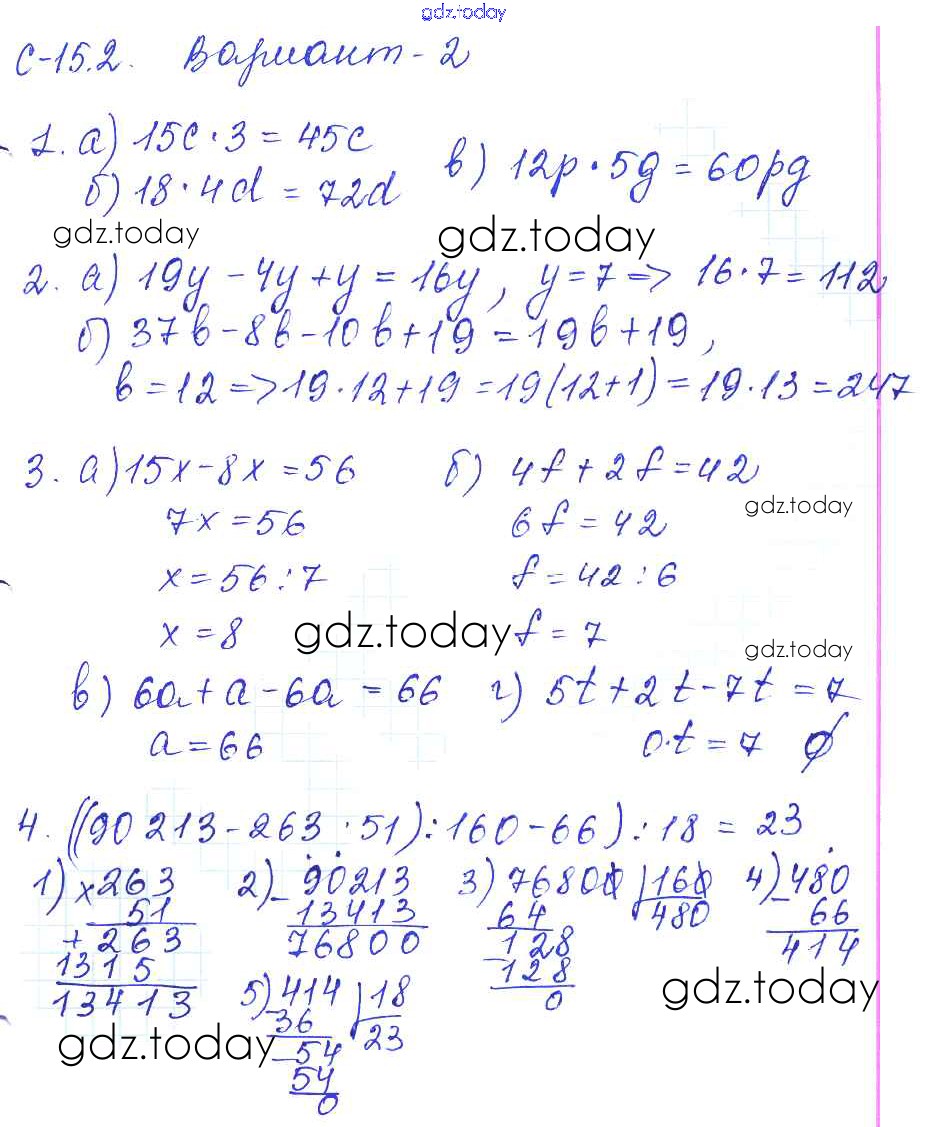 gdz.today
С-15.2. Вариант-2
1. а) 15c·3 = 45c
б) 18·4d = 72d
в) 12p·5g = 60pg
gdz.today
gdz.today
2. а) 19y - 4y + y = 16y, y = 7 => 16·7 = 112,
б) 37b - 8b - 10b + 19 = 19b + 19,
b = 12 => 19·12 + 19 = 19(12+1) = 19·13 = 247
3. а) 15x - 8x = 56
7x = 56
x = 56:7
x = 8
б) 4f + 2f = 42
6f = 42
f = 42:6
f = 7
gdz.today
gdz.today
gdz.today
в) 6a + a - 6a = 66
a = 66
г) 5t + 2t - 7t = 7
0·t = 7 ∅
4. ((90 213 - 263·51):160 - 66):18 = 23
1) ×263
51
+263
1315
13413
2) -90213
13413
76800
3) 76800 | 160
64 480
-128
128
0
4) -480
66
414
5) -414 | 18
36 23
-54
54
0
gdz.today
gdz.today